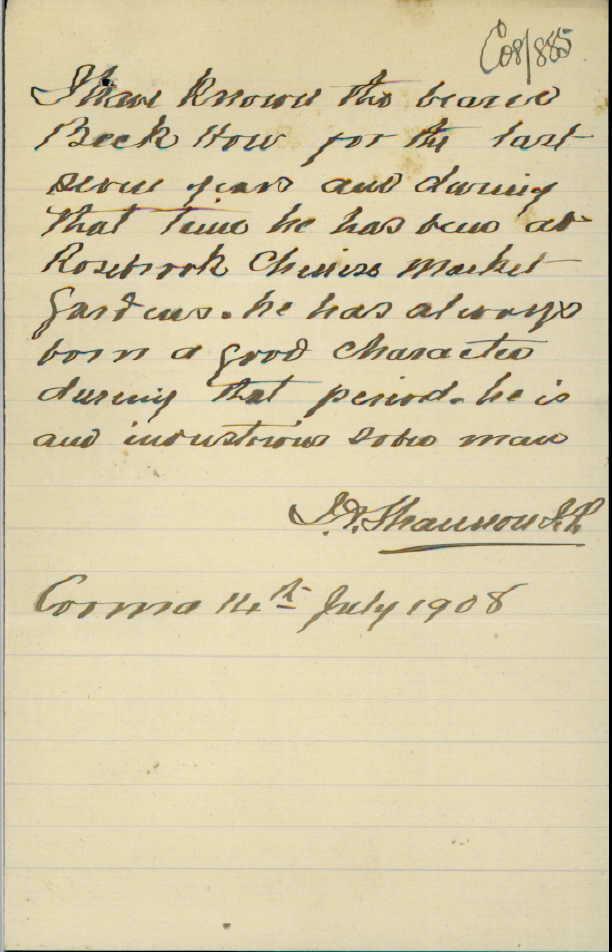 C08/885
I have known the bearer
Beck How for the last
seven years and during
that time he has been at
Rosebrook Chiness Market
Gardens. he has always
born a good character
during that period. he is
and industrious sober man
J.P. Shannon J.P.
Cooma 14th July 1908